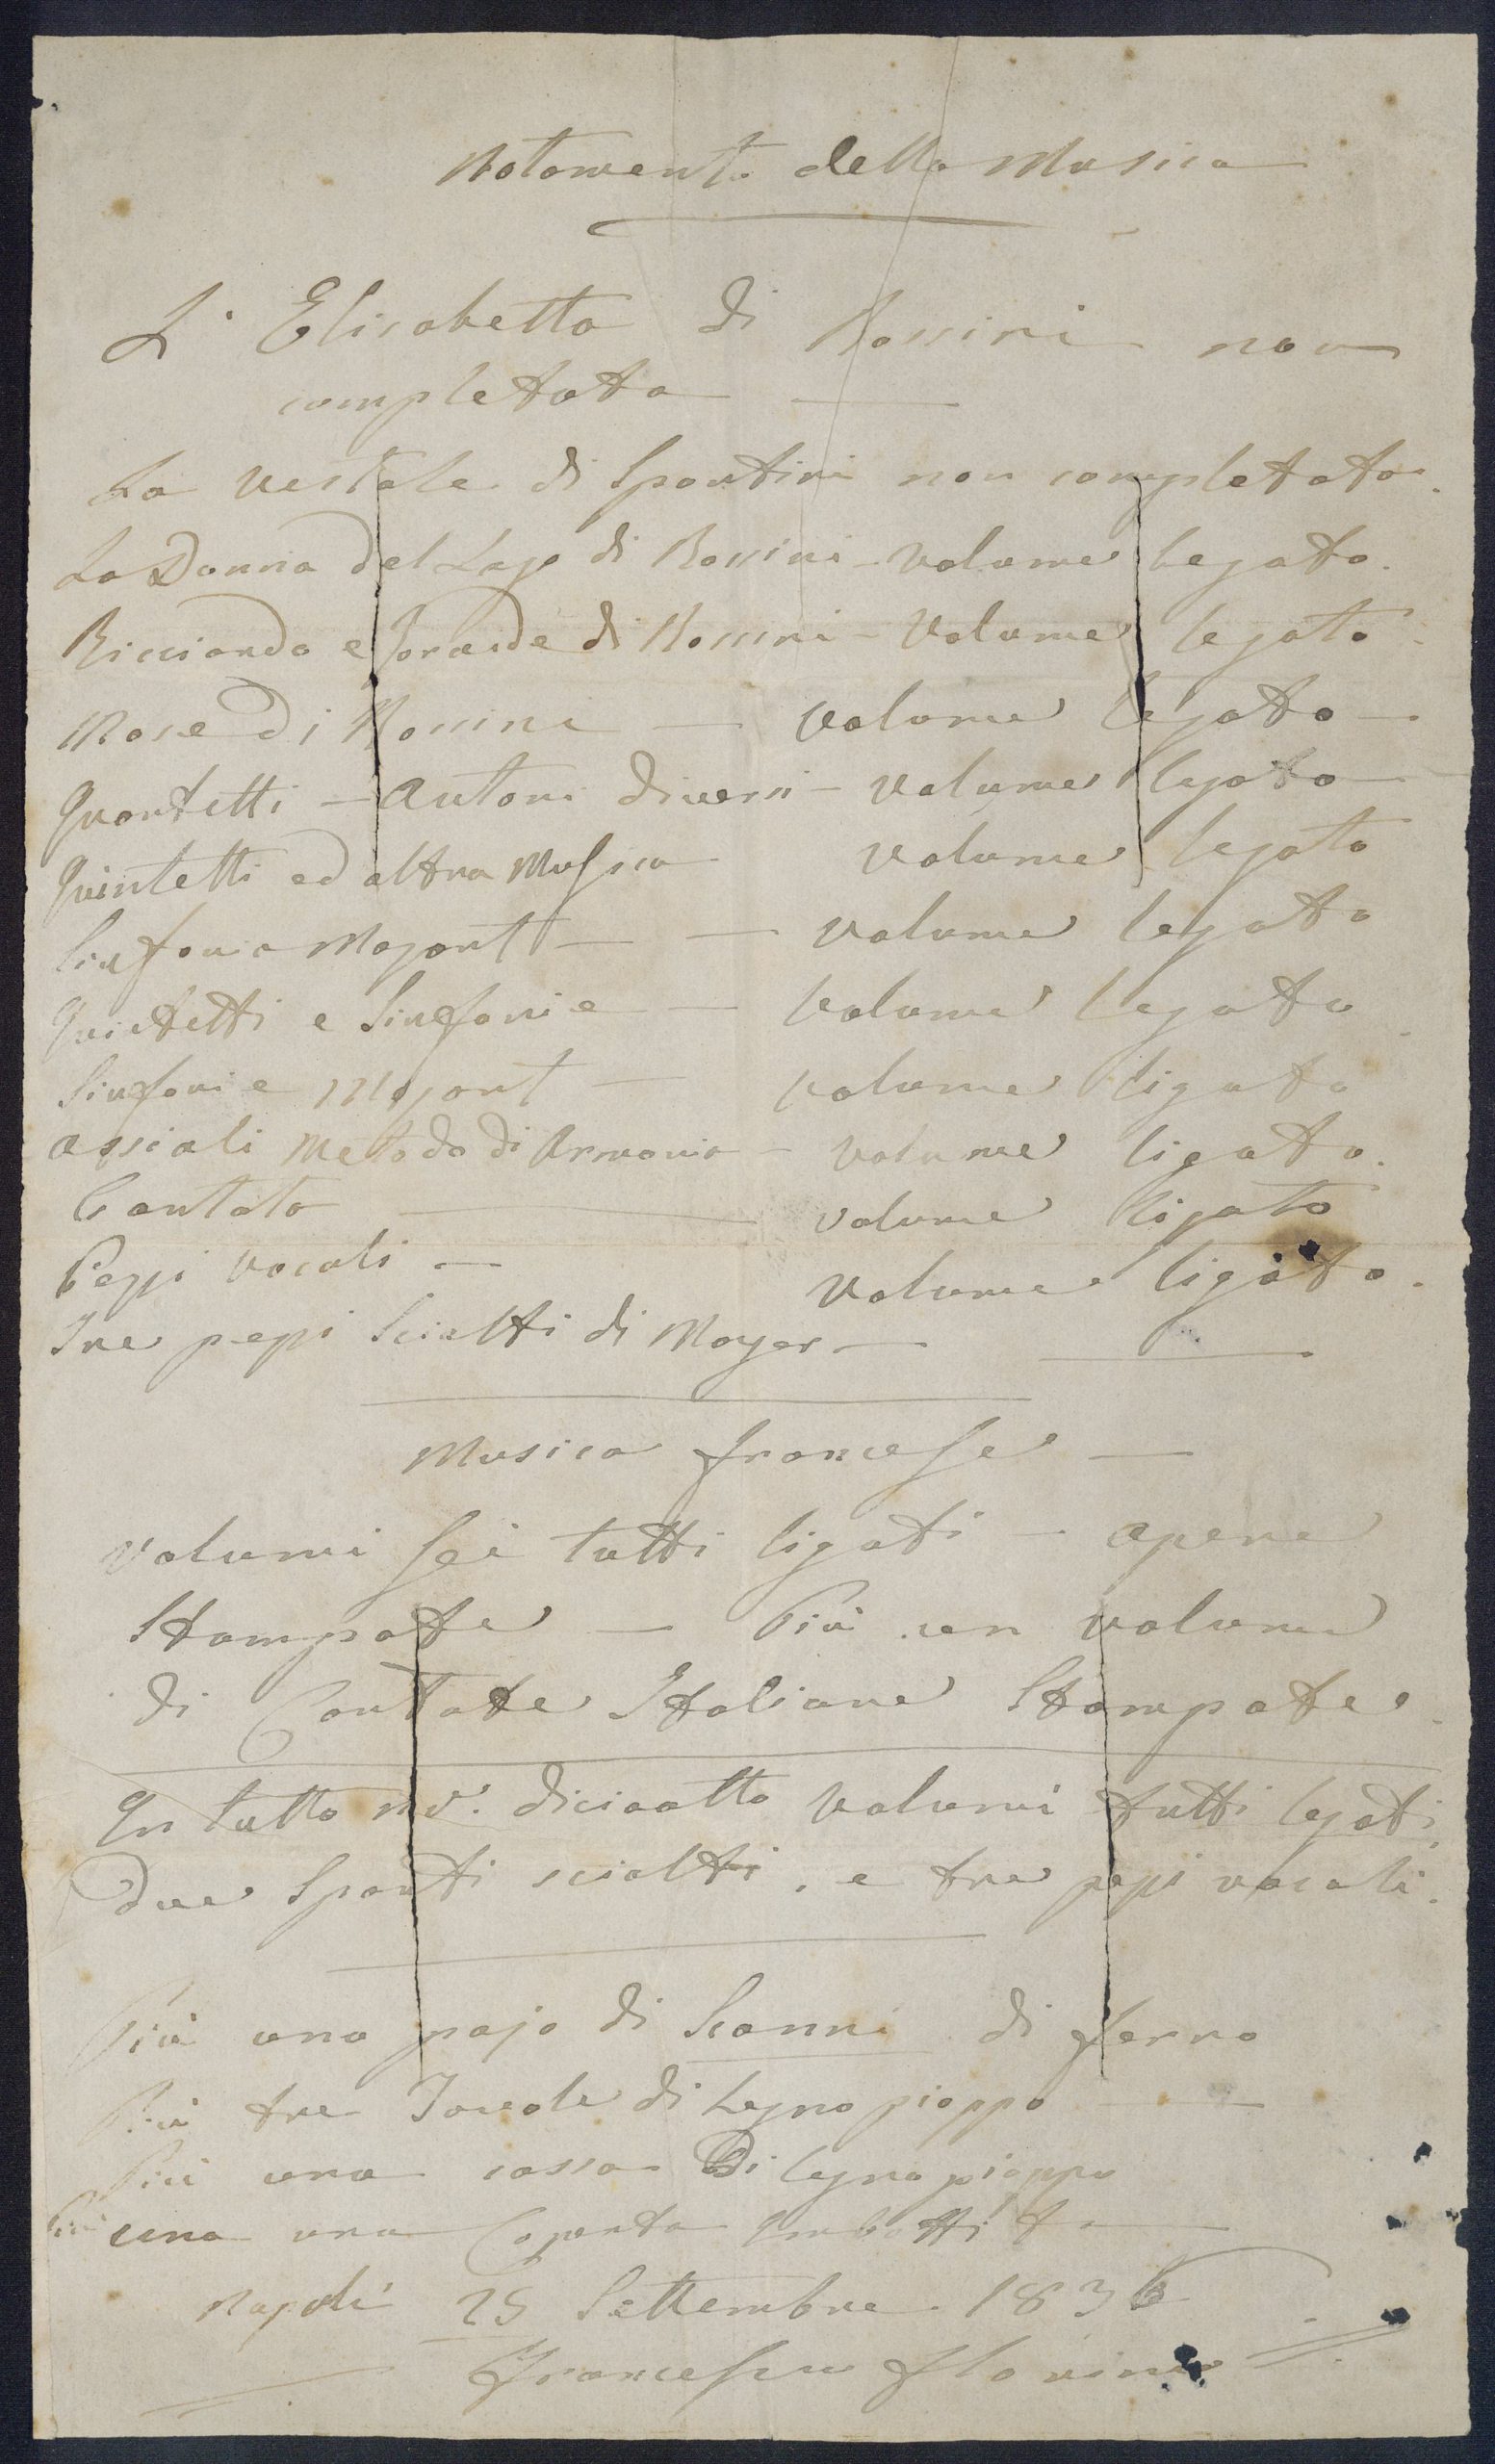 Notamento della Musica
L' Elisabetta di Rossini non
completata
La Vestale di Spontini non completata.
La Donna del Lago di Rossini - Volume legato.
Ricciardo e Zoraide di Rossini - Volume legato.
Mosè di Rossini — Volume legato —
Quartetti — Autori diversi — Volume legato
Quintetti ed altra Musica Volume legato
Sinfonia Mozart — — Volume legato
Quartetti e Sinfonie — Volume legato
Sinfonie Mozart — Volume ligato
Assioli Metodo di Armonia — Volume ligato.
Cantata — volume ligato
Pezzi vocali — Volume ligato.
Tre pezzi Sciolti di Mayer —
Musica francese —
Volumi sei tutti ligati — opere
Stampate — Più un volume
di Cantate Italiane Stampate.
In tutto nº. diciaotto Volumi tutti legati,
due Sparti sciolti, e tre pezzi vocali.
Più uno pajo di Scanni di ferro
Più tre Tavole di Legno pioppo —
Più una cassa Di legno pioppo
Più una una Coperta Imbottita
Napoli 25 Settembre 1836
Francesco Florimo